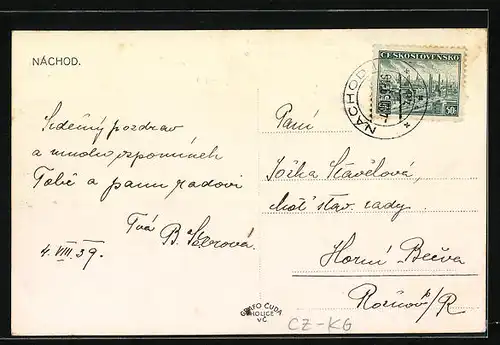 NÁCHOD.
ČESKO-SLOVENSKO
50h
NÁCHOD
Srdečný pozdrav
a mnoho vzpomínek
Tobě a panu radovi
Tvá
B.
4. VIII. 39.
Paní
Jožka Stavělová,
choť stav. rady
Horní Bečva
Rožnov p/R
GRAFO ČUDA
HOLICE
v Č.
CZ-KG